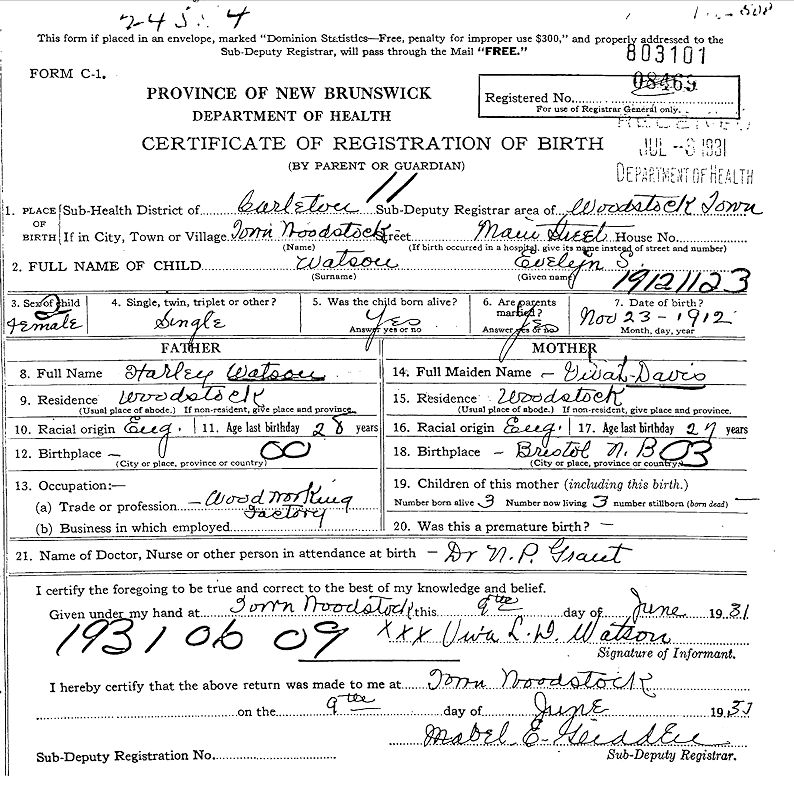 24 5 4
This form if placed in an envelope, marked "Dominion Statistics—Free, penalty for improper use $300," and properly addressed to the
Sub-Deputy Registrar, will pass through the Mail "FREE."
803101
FORM C-1.
08469
PROVINCE OF NEW BRUNSWICK
Registered No.
DEPARTMENT OF HEALTH
For use of Registrar General only.
RECEIVED
CERTIFICATE OF REGISTRATION OF BIRTH
JUL -6 1931
(BY PARENT OR GUARDIAN)
DEPARTMENT OF HEALTH
11
1. PLACE OF BIRTH Sub-Health District of Carleton Sub-Deputy Registrar area of Woodstock Town
If in City, Town or Village Town Woodstock Street Main Street House No.
(Name) (If birth occurred in a hospital, give its name instead of street and number)
2. FULL NAME OF CHILD Watson Evelyn S.
(Surname) (Given name)
19121123
3. Sex of child 2 Female
4. Single, twin, triplet or other? Single
5. Was the child born alive? Yes
Answer yes or no
6. Are parents married? Yes
Answer yes or no
7. Date of birth? Nov 23-1912
Month, day, year
FATHER MOTHER
8. Full Name Harley Watson 14. Full Maiden Name – Davis
9. Residence Woodstock 15. Residence Woodstock
(Usual place of abode.) If non-resident, give place and province. (Usual place of abode.) If non-resident, give place and province.
10. Racial origin Eng. 11. Age last birthday 28 years 16. Racial origin Eng. 17. Age last birthday 27 years
12. Birthplace – 00 18. Birthplace – Bristol N.B 03
(City or place, province or country) (City or place, province or country)
13. Occupation:— 19. Children of this mother (including this birth.)
(a) Trade or profession – Wood Working Factory Number born alive 3 Number now living 3 number stillborn (born dead) —
(b) Business in which employed 20. Was this a premature birth? –
21. Name of Doctor, Nurse or other person in attendance at birth – Dr N. P. Grant
I certify the foregoing to be true and correct to the best of my knowledge and belief.
Given under my hand at Town Woodstock this 9th day of June 1931
1931 06 09 xxx Viva L. D. Watson
Signature of Informant.
I hereby certify that the above return was made to me at Town Woodstock
on the 9th day of June 1931
Mabel E.
Sub-Deputy Registration No. Sub-Deputy Registrar.